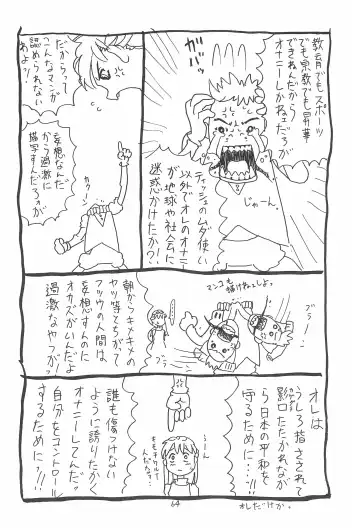 教育でもスポーツ
でも宗教でも昇華
できねんだから
オナニーしかねェだろが
じゃーん。
ティッシュのムダ使い
以外でオレのオナニー
が地球や社会に
迷惑かけたか?!
だからって
こんなマンガ
認められない
わよッ!
妄想なんだ
から過激に
描写すんだろォが
マンコも
描けねェしよ。
朝からキメキメの
ヤツ等とちがって
フツウの人間は
妄想すんのに
オカズがいんだよ
過激なヤツが!
オレは
うしろ指さされて
影口たたかれなが
ら日本の平和を
守るために…!
うーん
誰も傷つけない
ように誇りたかく
オナニーしてんだ。
自分をコントロール
するために…!!
64
オレだけか。